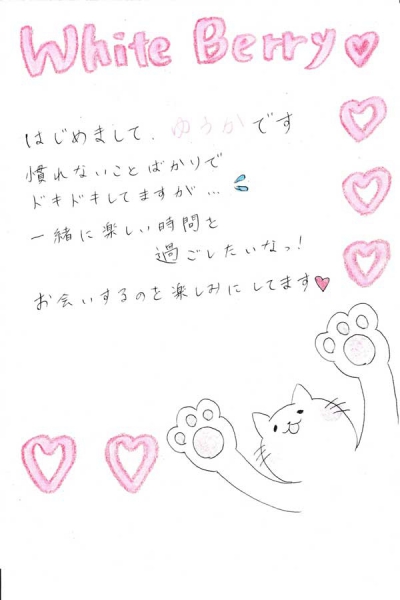 White Berry♥
はじめまして、ゆうかです
慣れないことばかりで
ドキドキしてますが…
一緒に楽しい時間を
過ごしたいなっ!
お会いするのを楽しみにしてます♥